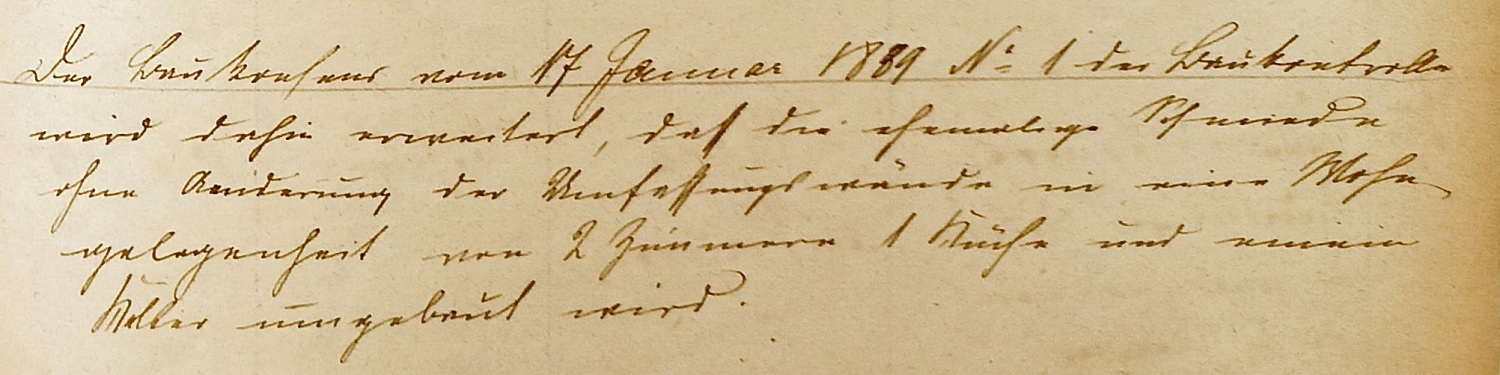 Der Baukonsens vom 17 Januar 1889 No 1 der Baukontrolle
wird dahin erweitert, daß die ehemalige Schmiede
ohne Aenderung der Umfassungswände in eine Wohn-
gelegenheit von 2 Zimmern 1 Küche und einem
Keller umgebaut wird.